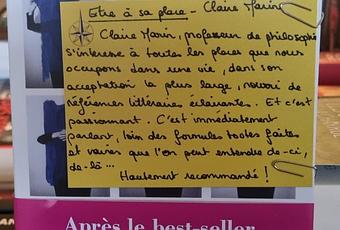 Etre à sa place - Claire Marin
Claire Marin, professeur de philosophie
s'intéresse à toutes les places que nous
occupons dans une vie, dans son
acceptation la plus large, nourri de
références littéraires éclairantes. Et c'est
passionnant. C'est immédiatement
parlant, loin des formules toutes faites
et vaines que l'on peut entendre de-ci,
de-là...
Hautement recommandé !
Après le best-seller